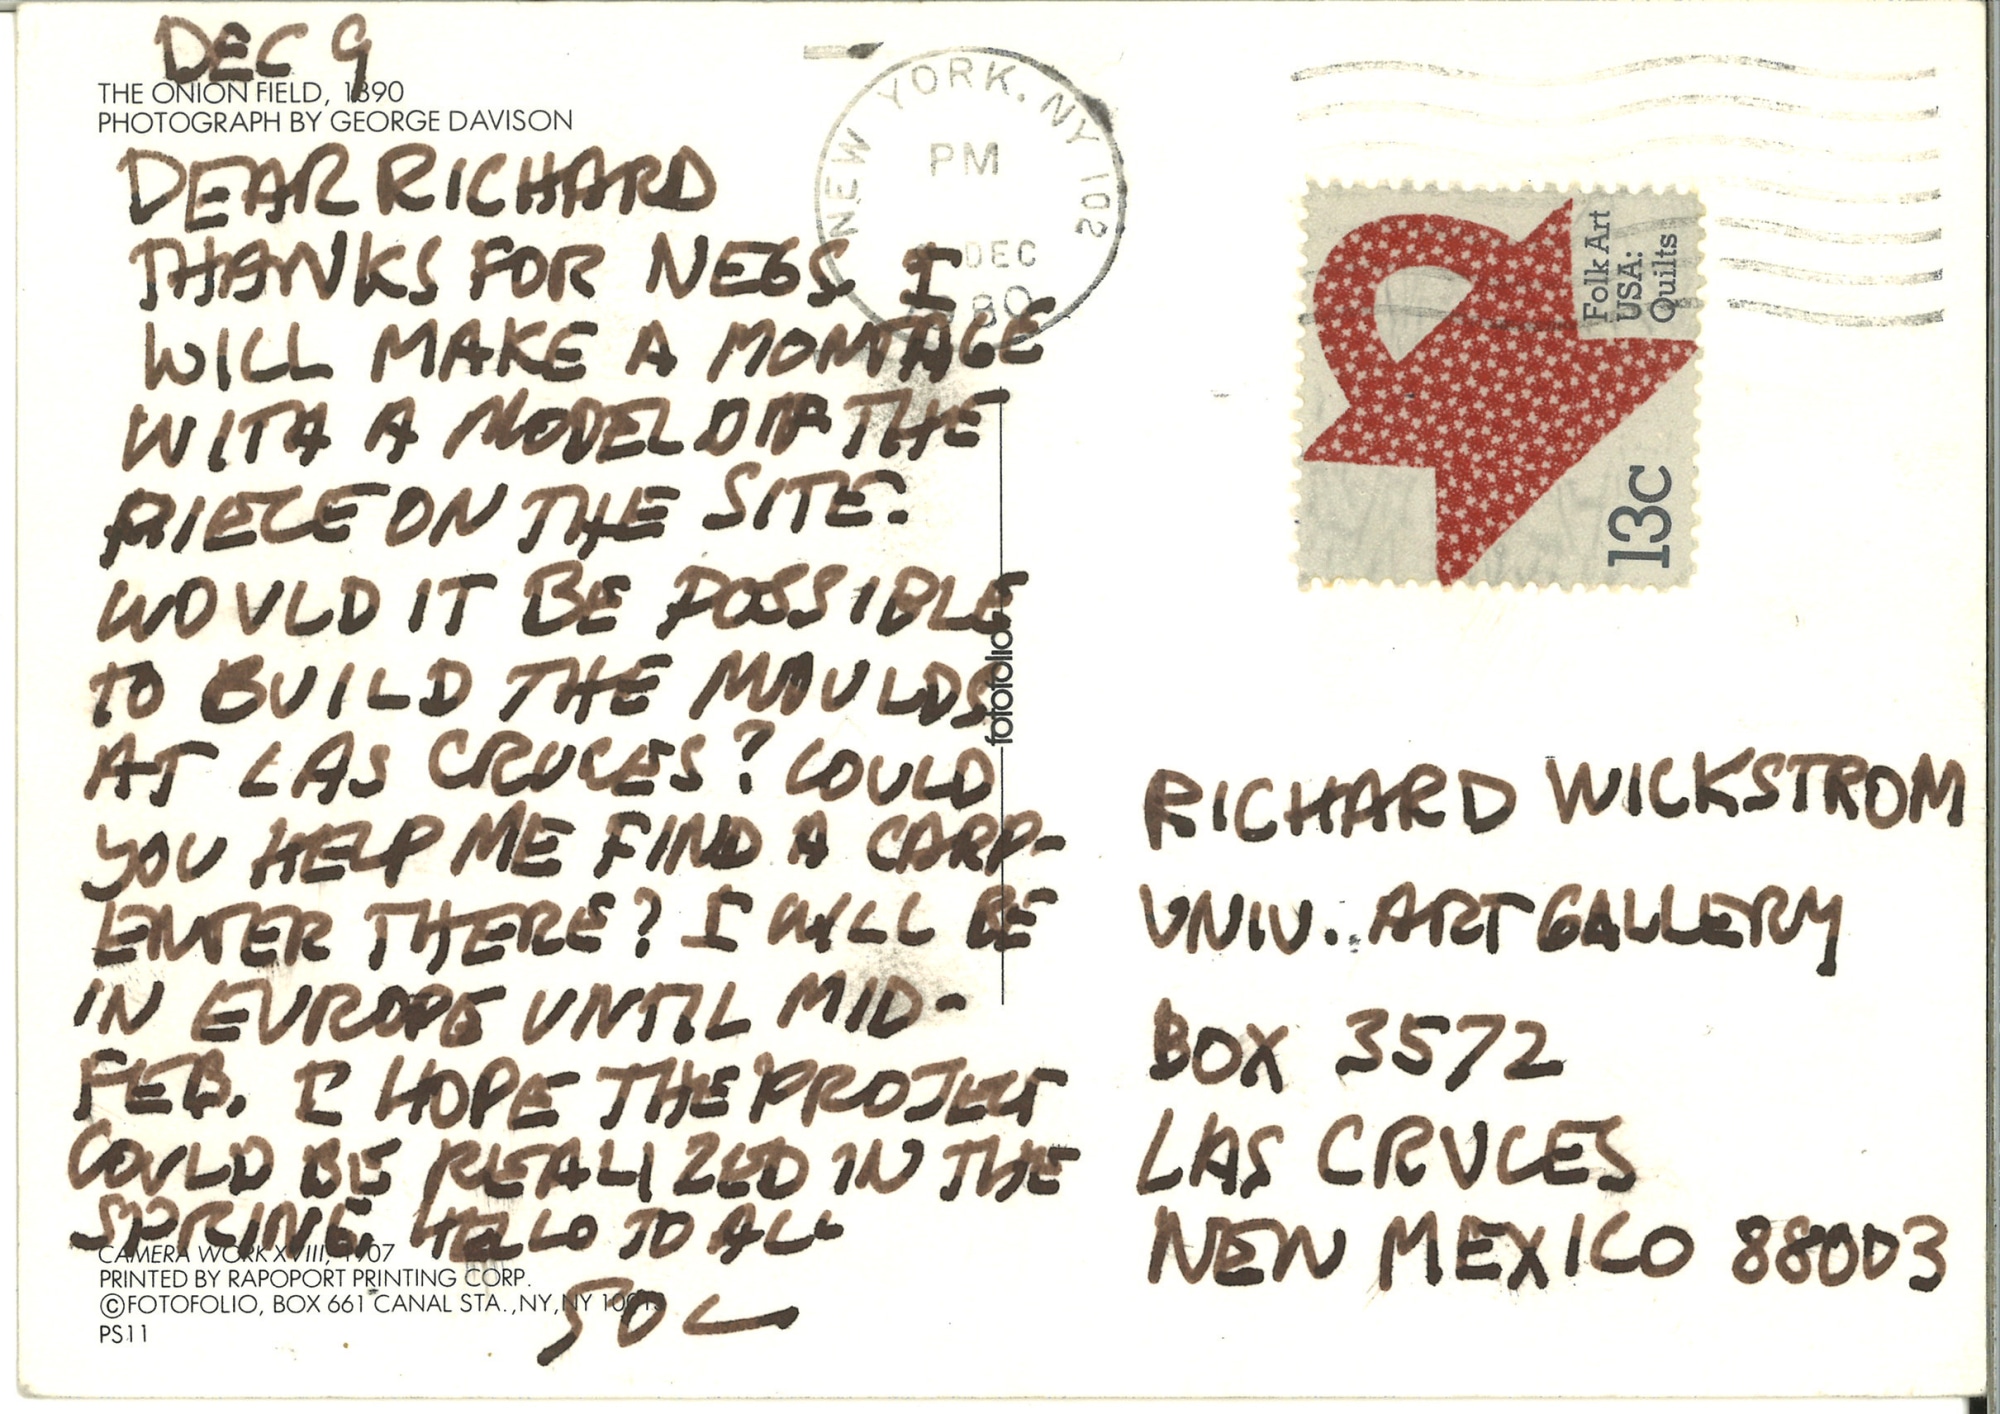 DEC 9
THE ONION FIELD, 1890
PHOTOGRAPH BY GEORGE DAVISON
DEAR RICHARD
THANKS FOR NEGS. I
WILL MAKE A MONTAGE
WITH A MODEL OF THE
PIECE ON THE SITE.
WOULD IT BE POSSIBLE
TO BUILD THE MOULDS
AT LAS CRUCES? COULD
YOU HELP ME FIND A CARP-
ENTER THERE? I WILL BE
IN EUROPE UNTIL MID-
FEB. I HOPE THE PROJECT
COULD BE REALIZED IN THE
SPRING. HELLO TO ALL
SOL
CAMERA WORK XVIII, 1907
PRINTED BY RAPOPORT PRINTING CORP.
©FOTOFOLIO, BOX 661 CANAL STA., NY, NY 10013
PS11
fotofolio
NEW YORK, NY 102
PM
DEC
80
Folk Art
USA:
Quilts
13c
RICHARD WICKSTROM
UNIV. ART GALLERY
BOX 3572
LAS CRUCES
NEW MEXICO 88003